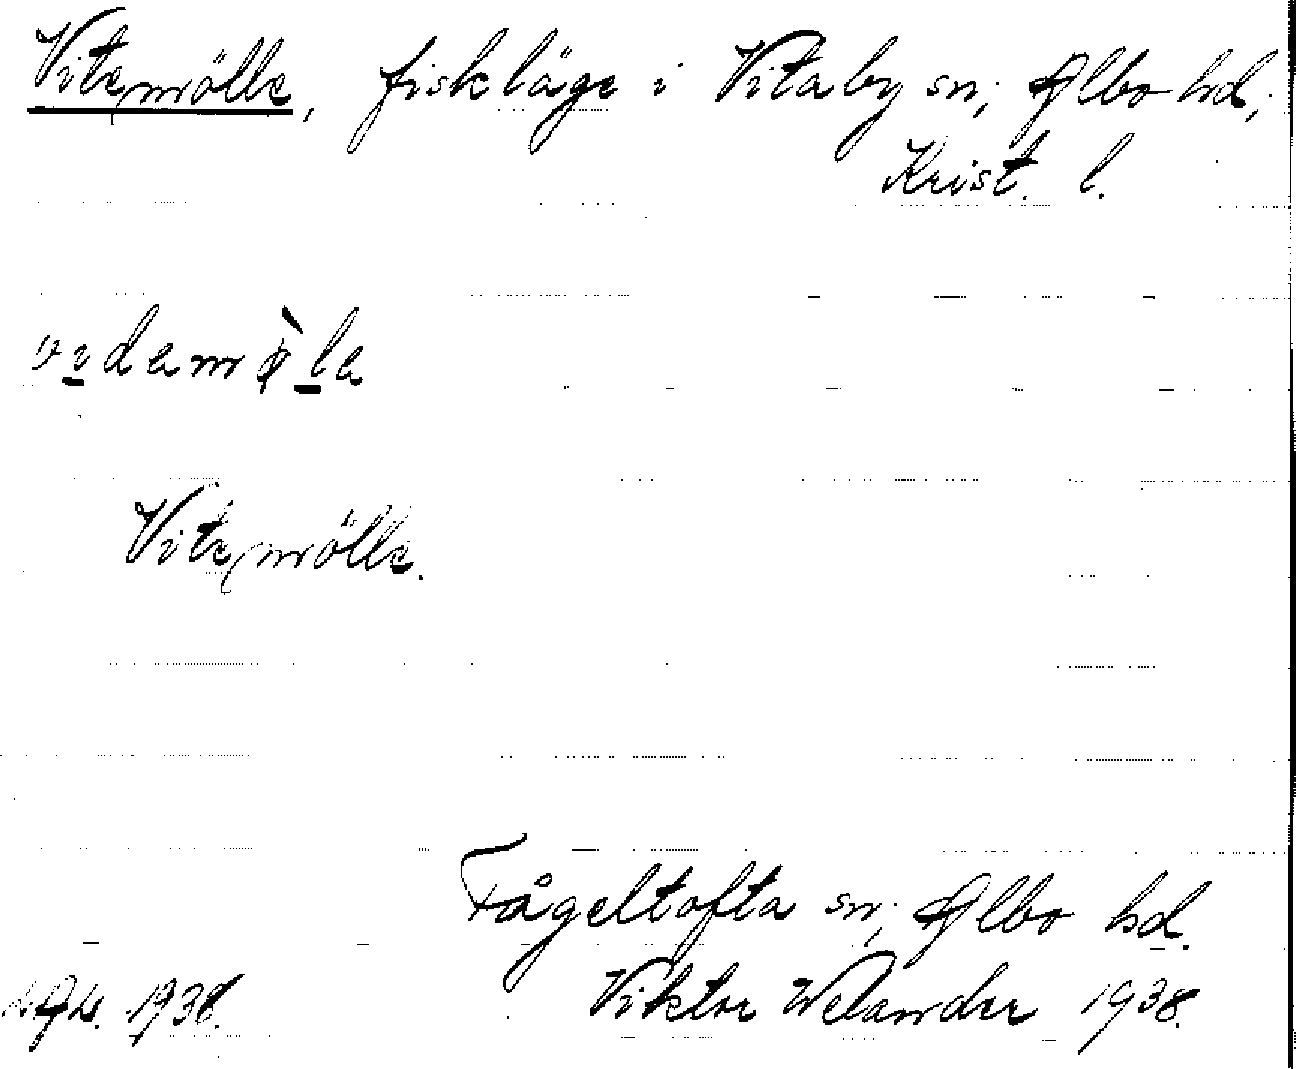 Vitemölle, fiskläge i Vitaby sn; Albo hd,
Krist. l.
Vitemölle.
Fågeltofta sn; Albo hd.
1938. Viktor Welander 1938.